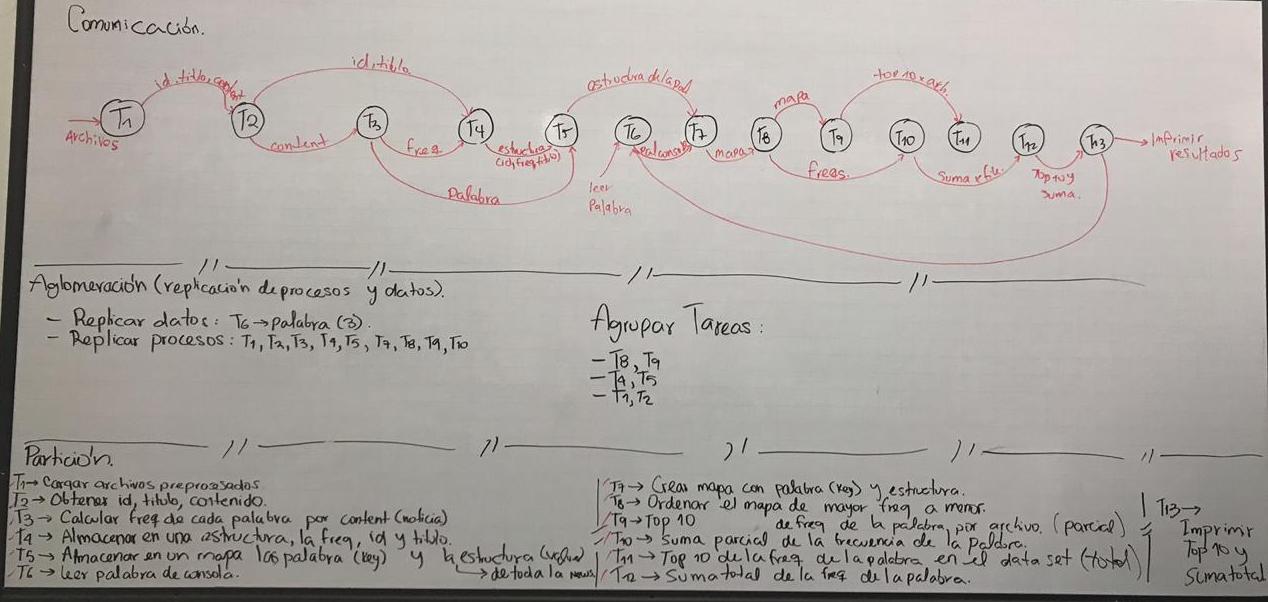 Comunicación.
id, titlo, content
id, titlo
estructura de la pal
mapa
top 10 x arch.
T1
T2
T3
T4
T5
T6
T7
T8
T9
T10
T11
T12
T13
Archivos
content
freq
estructura
(id, freq, titlo)
mapa
freqs.
Suma x file.
Top 10 y
suma.
Imprimir
resultados
Palabra
leer
Palabra
Aglomeración (replicación de procesos y datos).
- Replicar datos: T6 → palabra (3).
- Replicar procesos: T1, T2, T3, T4, T5, T7, T8, T9, T10
Agrupar Tareas:
- T8, T9
- T4, T5
- T1, T2
Partición.
T1 → Cargar archivos preprocesados
T2 → Obtener id, titulo, contenido.
T3 → Calcular freq de cada palabra por content (noticia)
T4 → Almacenar en una estructura, la freq, id y titlo.
T5 → Almacenar en un mapa las palabra (key) y la estructura (value)
→ de toda la news
T6 → leer palabra de consola.
T7 → Crear mapa con palabra (key) y estructura.
T8 → Ordenar el mapa de mayor freq a menor.
T9 → Top 10 de freq de la palabra, por archivo. (parcial)
T10 → Suma parcial de la frecuencia de la palabra.
T11 → Top 10 de la freq de la palabra en el data set (total)
T12 → Suma total de la freq de la palabra.
T13 →
Imprimir
Top 10 y
Suma total